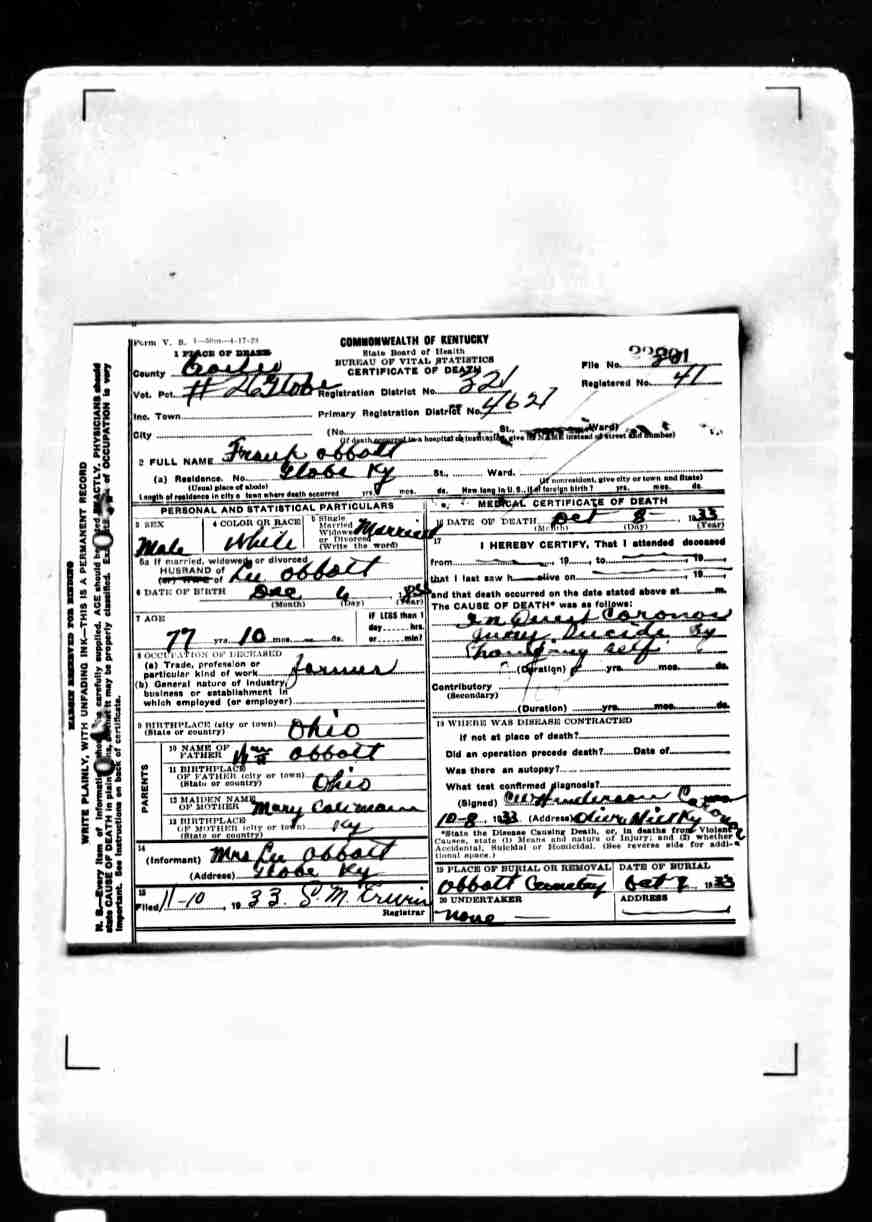 Form V. S. 1—50m—4-17-23
COMMONWEALTH OF KENTUCKY
State Board of Health
BUREAU OF VITAL STATISTICS
CERTIFICATE OF DEATH
File No.
Registered No. 41
1 PLACE OF DEATH
County Carter
Vot. Pct. # 26 Globe Registration District No. 321
Inc. Town Primary Registration District No. 4621
City (No. St., Ward)
(If death occurred in a hospital or institution, give its NAME instead of street and number)
2 FULL NAME Frank Abbott
(a) Residence. No. Globe Ky St., Ward.
(Usual place of abode) (If nonresident, give city or town and State)
Length of residence in city or town where death occurred yrs. mos. ds. How long in U. S., if of foreign birth? yrs. mos. ds.
PERSONAL AND STATISTICAL PARTICULARS
3 SEX
Male
4 COLOR OR RACE
White
5 Single
Married
Widowed
or Divorced
(Write the word)
Married
5a If married, widowed, or divorced
HUSBAND of
(or) WIFE of Lu Abbott
6 DATE OF BIRTH Dec 6
(Month) (Day) (Year)
7 AGE
77 yrs. 10 mos. — ds.
If LESS than 1
day hrs.
or min?
8 OCCUPATION OF DECEASED
(a) Trade, profession or
particular kind of work farmer
(b) General nature of industry,
business or establishment in
which employed (or employer)
9 BIRTHPLACE (city or town)
(State or country) Ohio
PARENTS
10 NAME OF
FATHER Wm Abbott
11 BIRTHPLACE
OF FATHER (city or town)
(State or country) Ohio
12 MAIDEN NAME
OF MOTHER Mary
13 BIRTHPLACE
OF MOTHER (city or town) Ky
(State or country)
14
(Informant) Mrs Lu Abbott
(Address) Globe Ky
15
Filed 11-10, 1933. S. M. Erwin
Registrar
MEDICAL CERTIFICATE OF DEATH
16 DATE OF DEATH Oct 8 1933
(Month) (Day) (Year)
17
I HEREBY CERTIFY, That I attended deceased
from , 19 , to , 19
that I last saw h alive on , 19
and that death occurred on the date stated above at m.
The CAUSE OF DEATH* was as follows:
In Coronor
Jurey Sucide By
self
(Duration) yrs. mos. ds.
Contributory
(Secondary)
(Duration) yrs. mos. ds.
18 WHERE WAS DISEASE CONTRACTED
If not at place of death?
Did an operation precede death? Date of
Was there an autopsy?
What test confirmed diagnosis?
(Signed) Henderson
10-8, 1933 (Address) Olive Hill Ky
*State the Disease Causing Death, or, in deaths from Violent
Causes, state (1) Means and nature of Injury; and (2) whether
Accidental, Suicidal or Homicidal. (See reverse side for addi-
tional space.)
19 PLACE OF BURIAL OR REMOVAL
Abbott Cemetery
DATE OF BURIAL
Oct 9 1933
20 UNDERTAKER
None —
ADDRESS
MARGIN RESERVED FOR BINDING
WRITE PLAINLY, WITH UNFADING INK—THIS IS A PERMANENT RECORD
N. B.—Every item of information should be carefully supplied. AGE should be stated EXACTLY. PHYSICIANS should
state CAUSE OF DEATH in plain terms, so that it may be properly classified. Exact statement of OCCUPATION is very
important. See instructions on back of certificate.